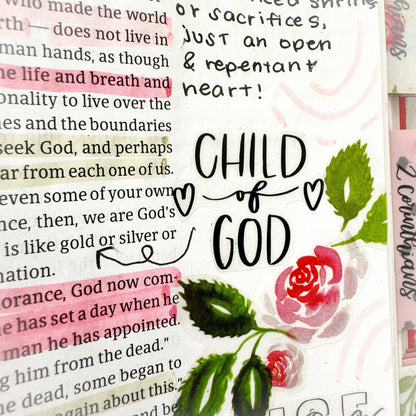 who made the world
— does not live in
man hands, as though
he life and breath and
onality to live over the
nes and the boundaries
seek God, and perhaps
ar from each one of us.
even some of your own
nce, then, we are God's
is like gold or silver or
nation.
norance, God now com-
e has set a day when he
man he has appointed.
g him from the dead."
he dead, some began to
again about this."
and be
or sacrifices,
just an open
& repentant
heart!
CHILD
of
GOD
2 Corinthians